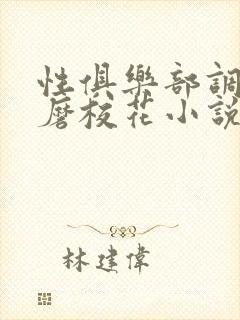 性俱樂部調
磨校花小說
林建偉